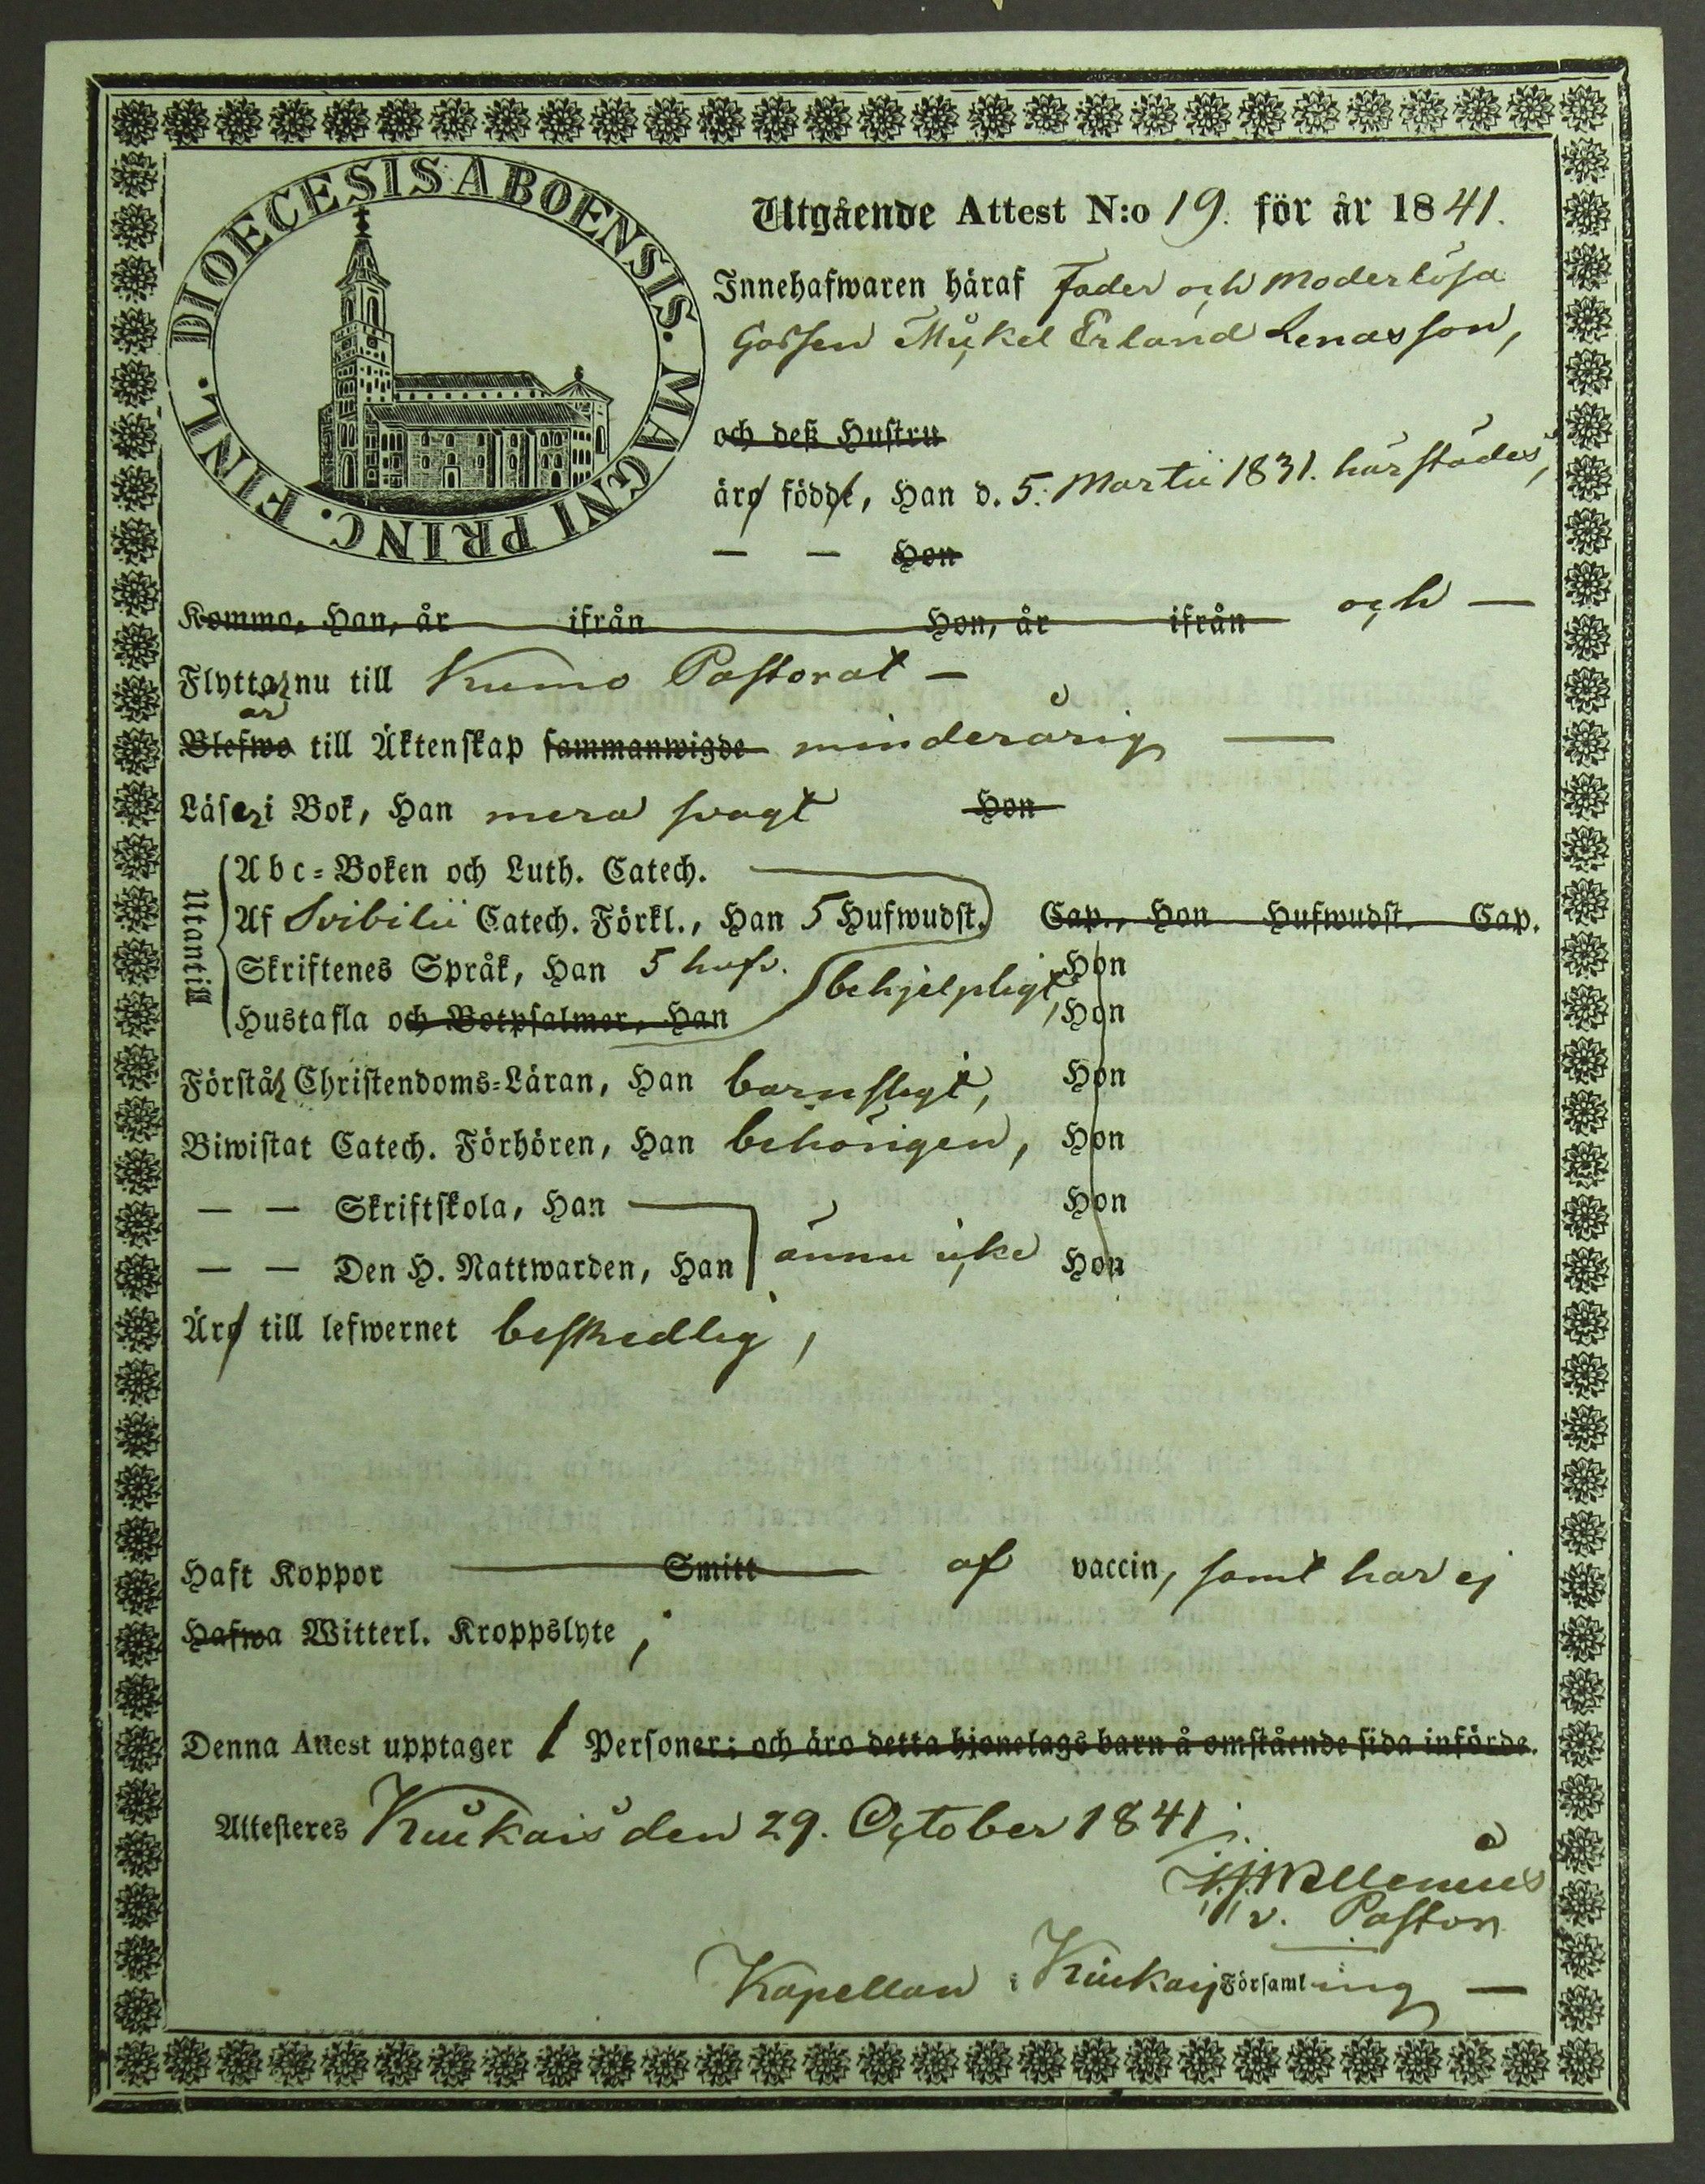 DIOECESIS ABOENSIS. MAGNI PRINC. FINL.
Utgående Attest N:o 19. för år 1841.
Innehafwaren häraf Fader och Moderlösa
Gossen Mickel Erland Lenasson,
och deß Hustru
äro födde, Han d. 5. Martii 1831. härstädes,
— — Hon
Komma, Han, år ifrån Hon, år ifrån och —
Flyttar nu till Kumo Pastorat —
är
Blefwo till Äktenskap sammanwigde minderårig —
Läser i Bok, Han mera svagt Hon
Utantill
Abc-Boken och Luth. Catech.
Af Svibilii Catech. Förkl., Han 5 Hufwudst. Cap., Hon Hufwudst. Cap.
Skriftenes Språk, Han 5 hufv. behjelpligt, Hon
Hustafla och Botpsalmer, Han Hon
Förstår Christendoms-Läran, Han barnsligt, Hon
Biwistat Catech. Förhören, Han behörigen, Hon
— — Skriftskola, Han Hon
— — Den H. Nattwarden, Han ännu icke Hon
Äro till lefwernet beskedlig,
Haft Koppor Smitt af vaccin, samt har ej
Hafwa Witterl. Kroppslyte;
Denna Attest upptager 1 Personer; och äro detta hjonelags barn å omstående sida införde.
Attesteres Kiukais den 29. October 1841.
v. Pastor
Kapellan i Kiukais Församling —